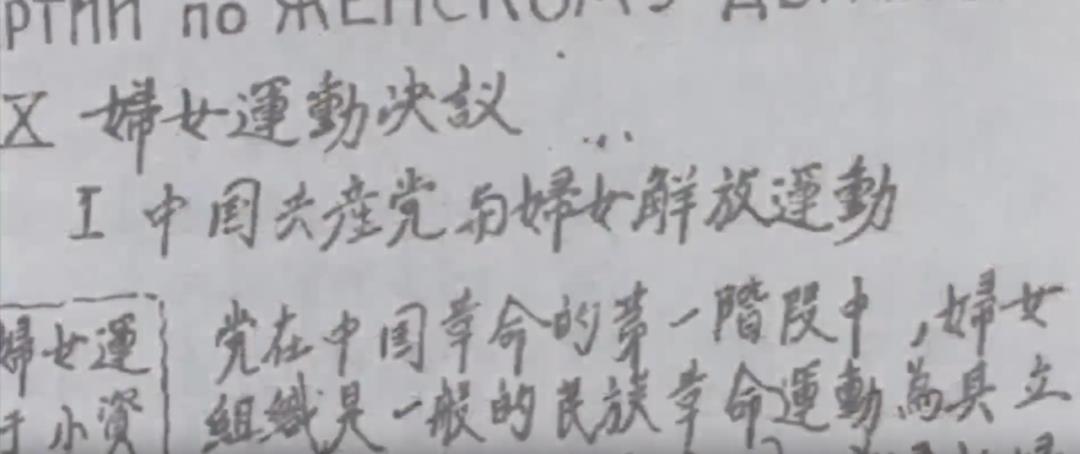 РТИИ по ЖЕНСКОМУ
X 婦女運動决議
I 中国共產党与婦女解放運動
婦女運
于小資
党在中国革命的第一階段中,婦女
組織是一般的民族革命運動為其立